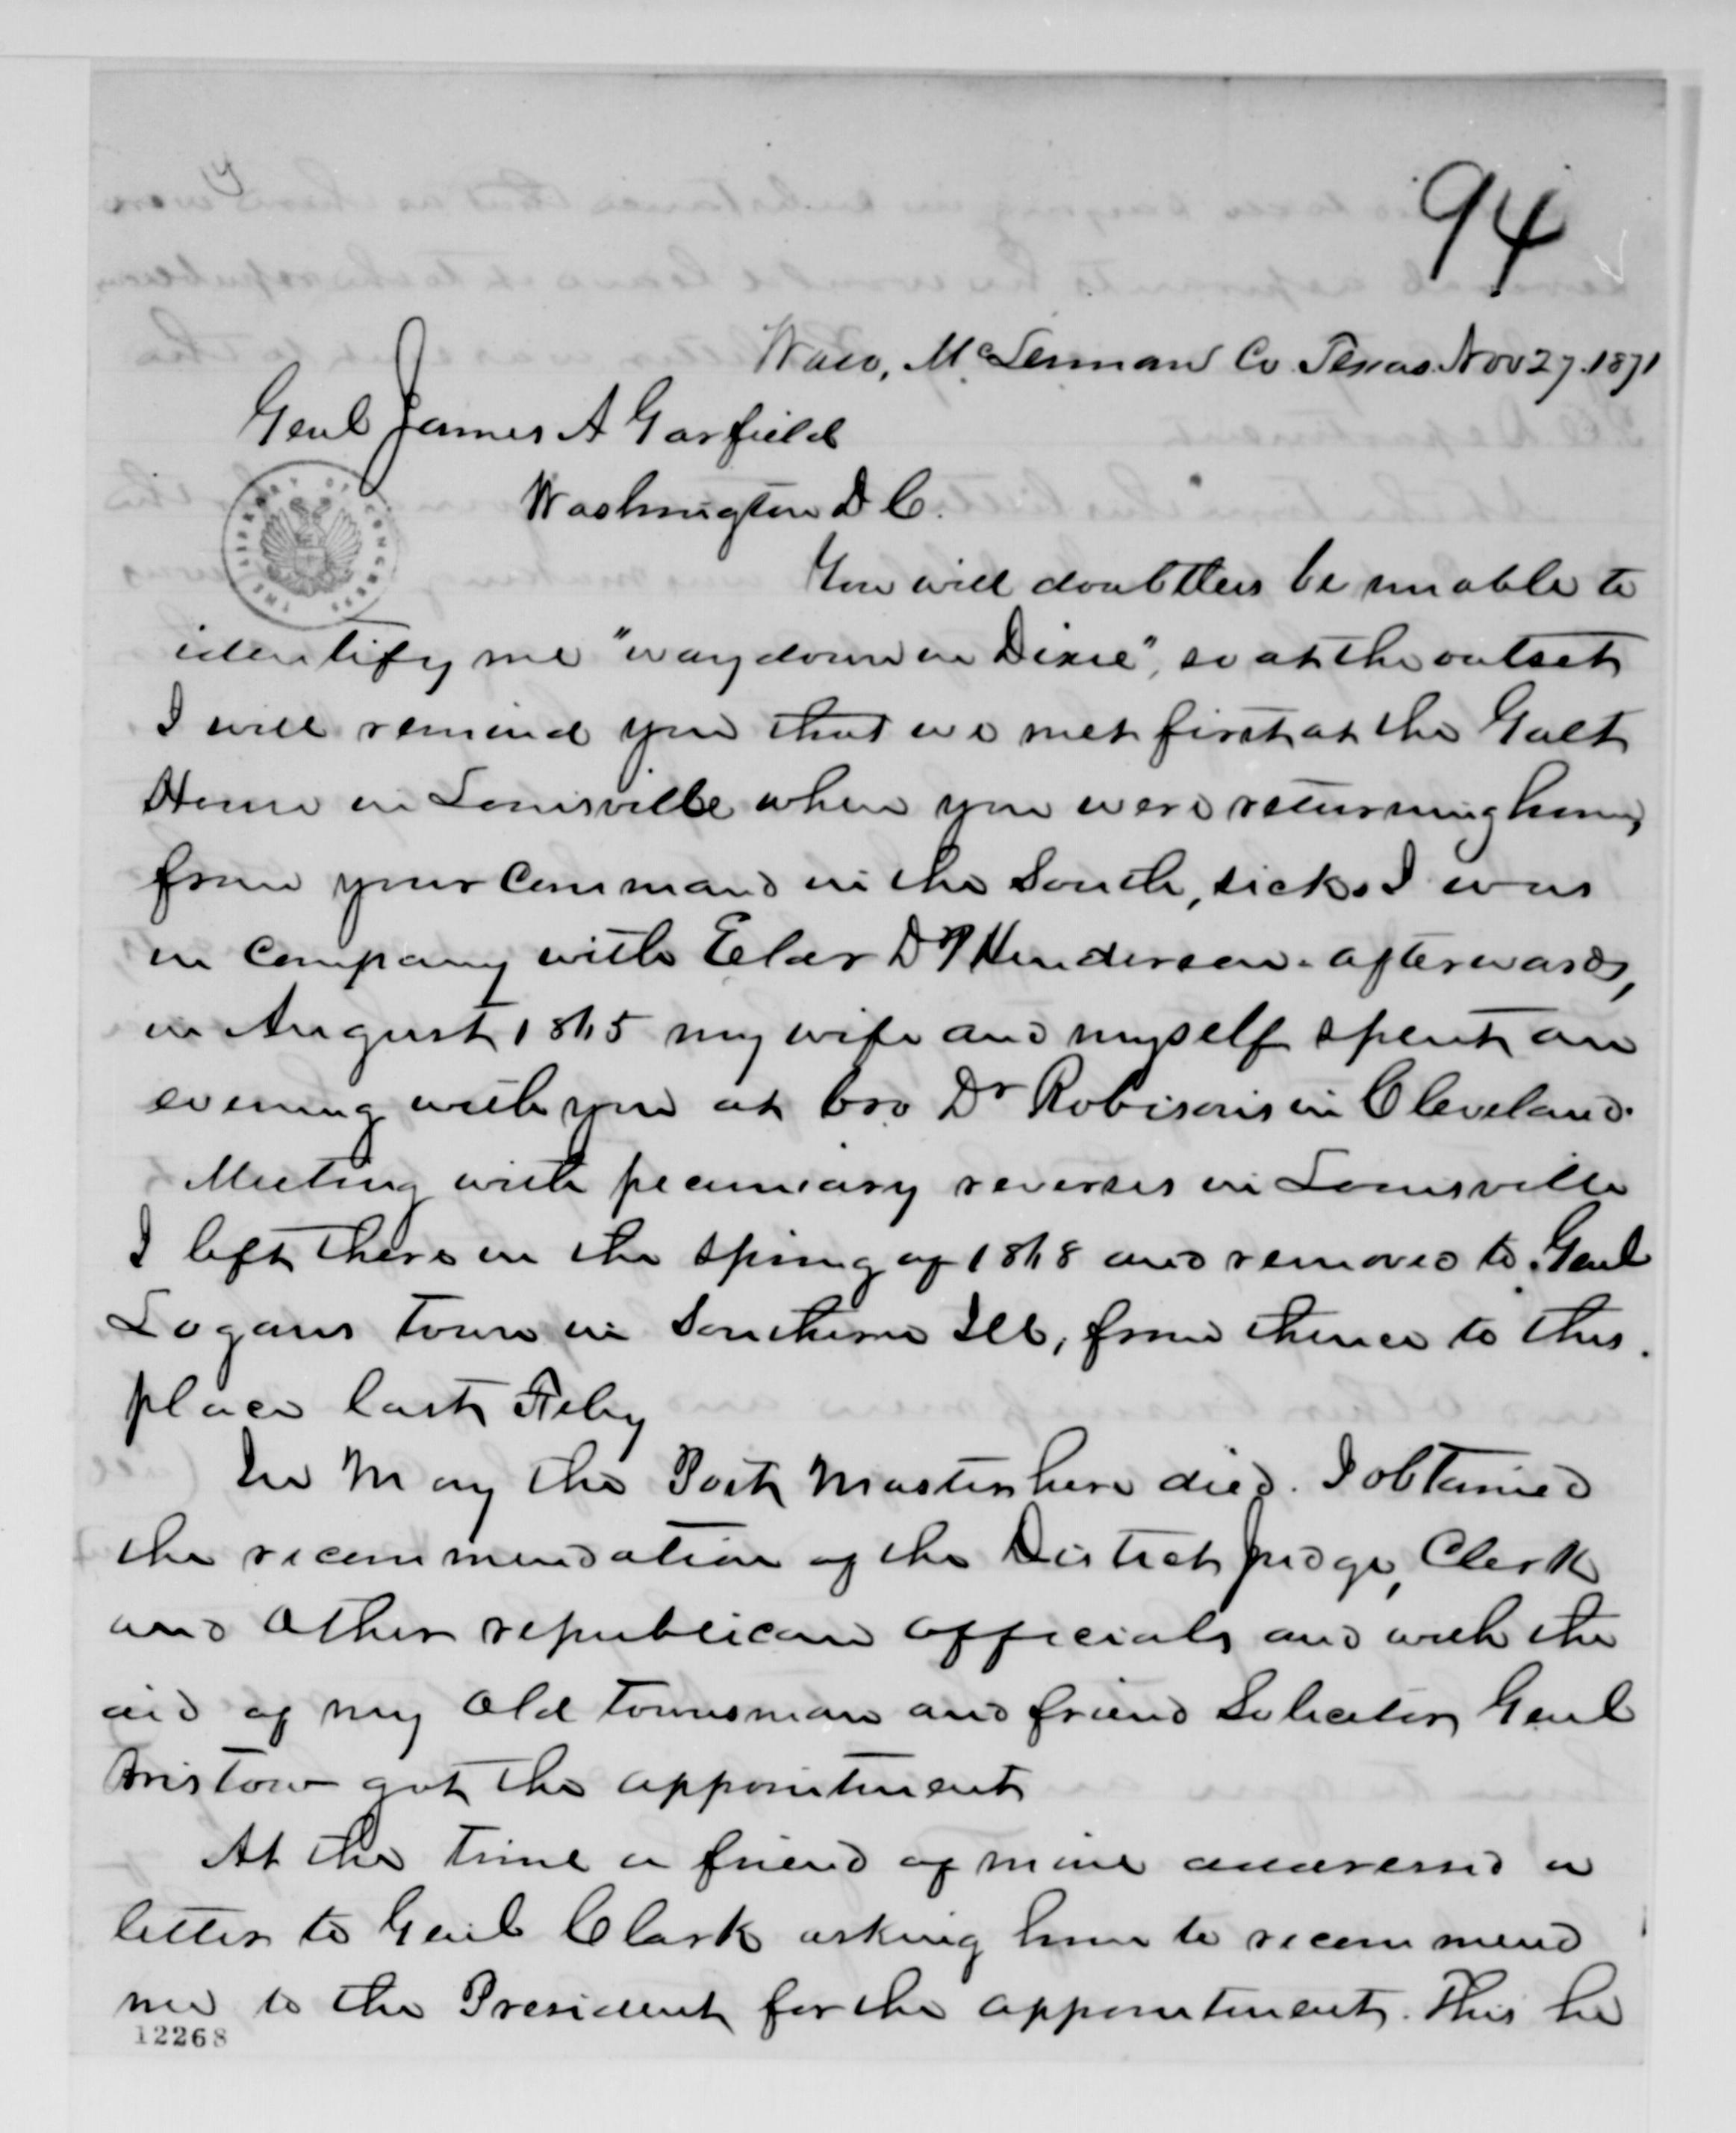 94
Waco, McLennan Co. Texas. Nov 27. 1871
Genl James A Garfield
Washington D C.
THE LIBRARY OF CONGRESS
You will doubtless be unable to
identify me "way down in Dixie", so at the outset
I will remind you that we met first at the Galt
House in Louisville when you were returning home,
from your command in the South, sick. I was
in company with Elder D P Henderson. afterwards,
in August 1865 my wife and myself spent an
evening with you at bro Dr Robisons in Cleveland.
Meeting with pecuniary reverses in Louisville
I left there in the spring of 1868 and removed to Genl
Logans town in Southern Ill, from thence to this
place last Feby
In May the Post Master here died. I obtained
the recommendation of the District Judge, Clerk
and other republican officials and with the
aid of my old townsman and friend Solicitor Genl
Bristow got the appointment
At the time a friend of mine addressed a
letter to Genl Clark asking him to recommend
me to the President for the appointment. This he
12268